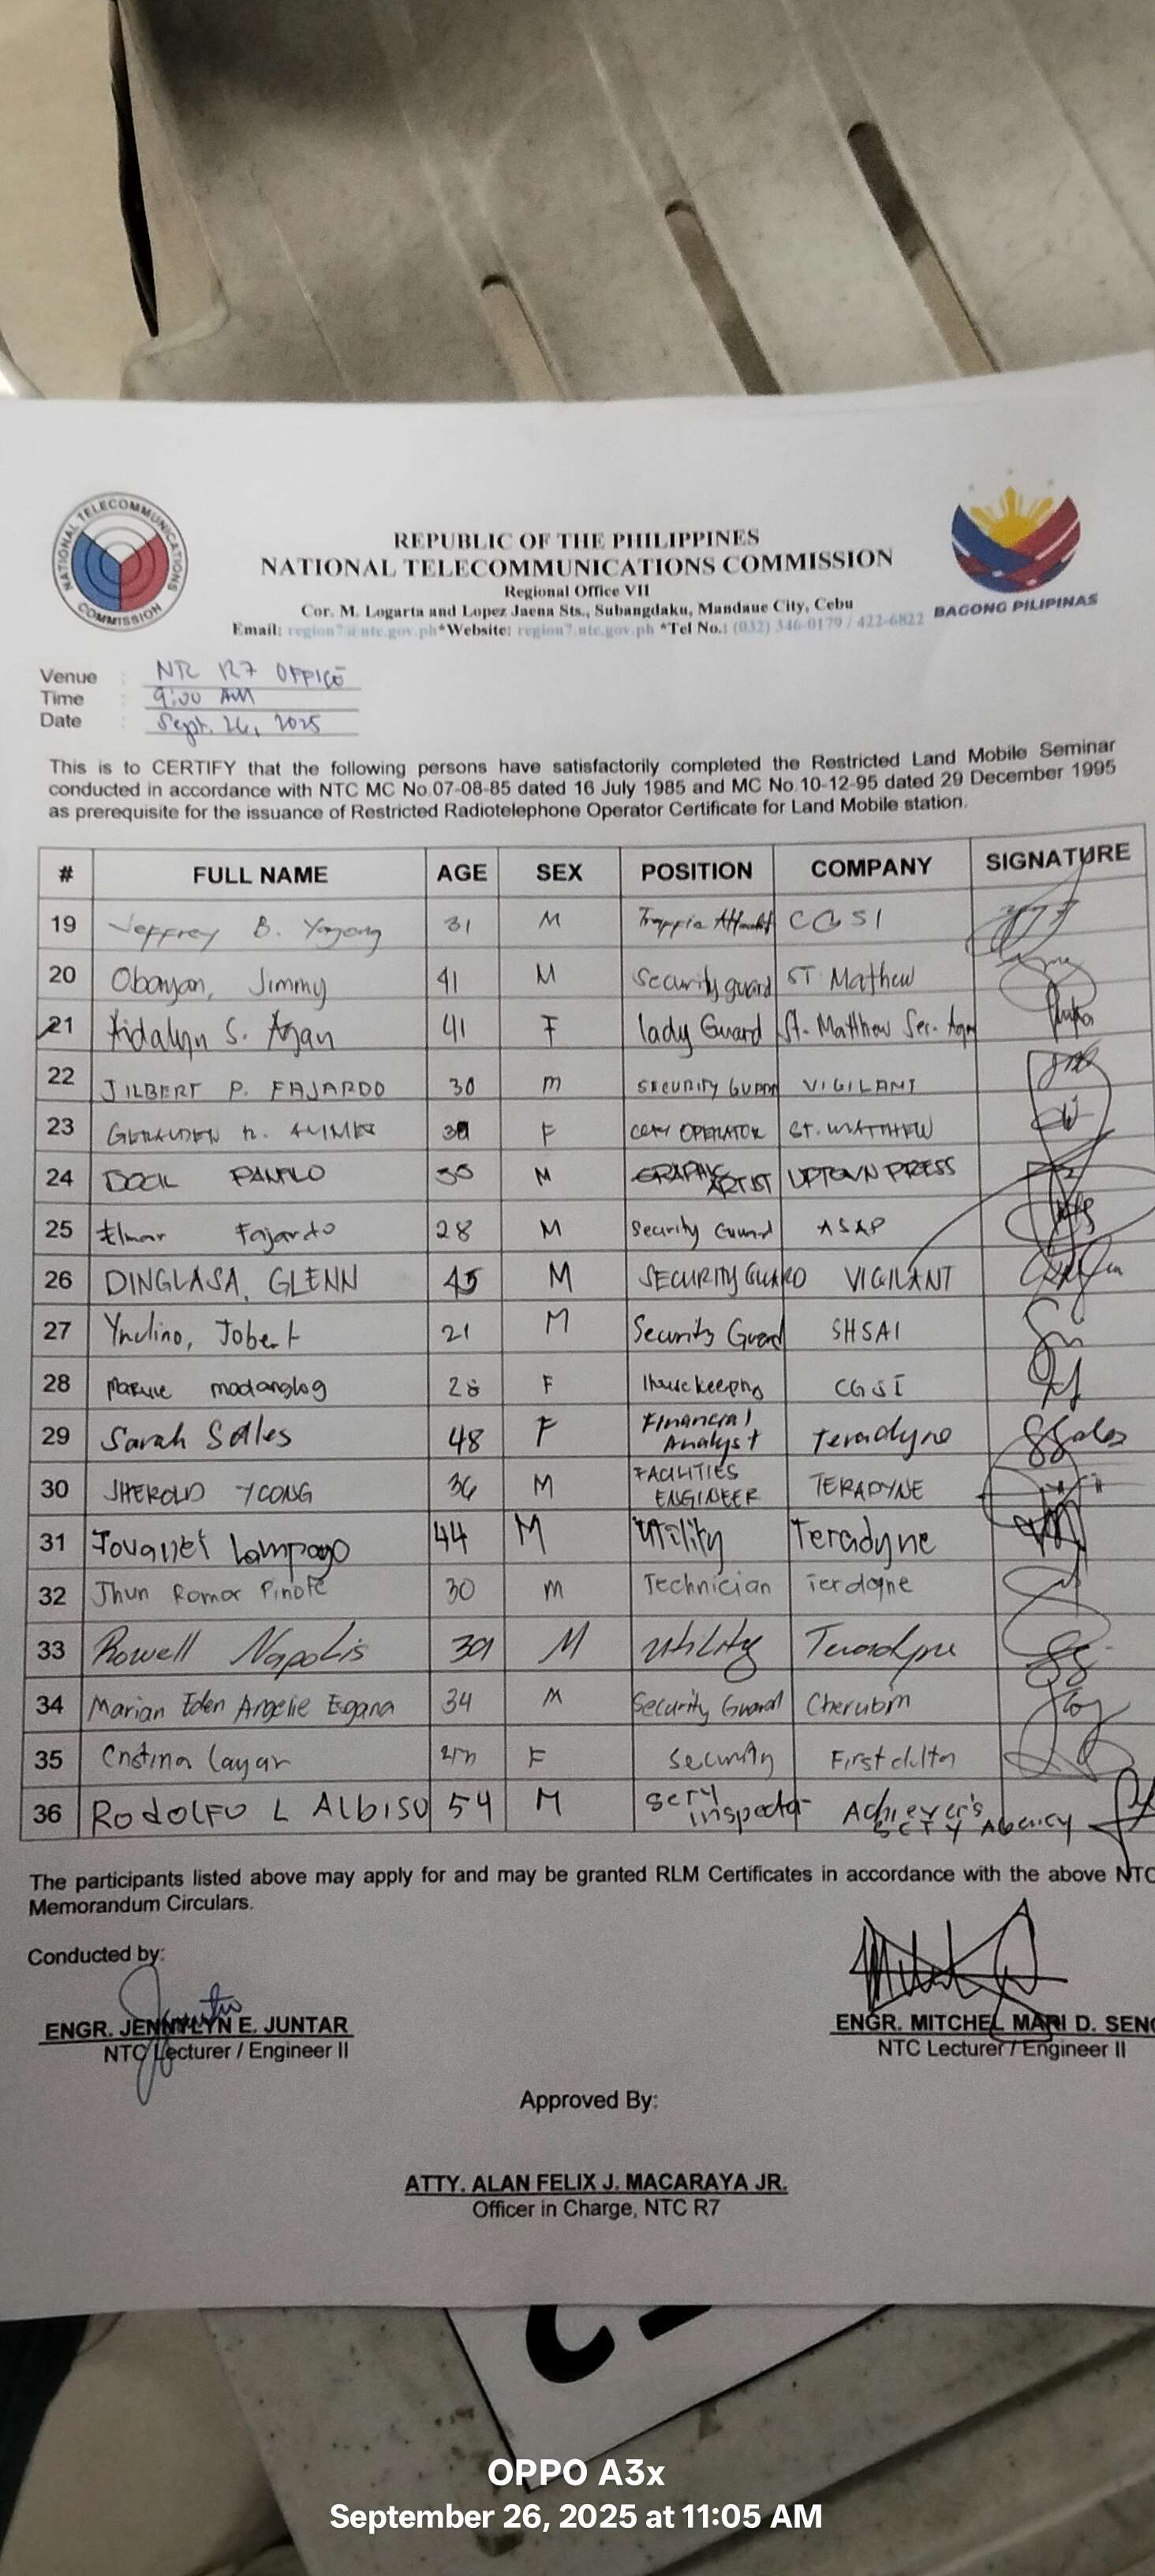 NATIONAL TELECOMMUNICATIONS COMMISSION
REPUBLIC OF THE PHILIPPINES
NATIONAL TELECOMMUNICATIONS COMMISSION
Regional Office VII
Cor. M. Logarta and Lopez Jaena Sts., Subangdaku, Mandaue City, Cebu
Email: region7@ntc.gov.ph*Website: region7.ntc.gov.ph *Tel No.: (032) 346-0179 / 422-6822
BAGONG PILIPINAS
Venue : NTC R7 OFFICE
Time : 9:00 AM
Date : Sept. 26, 2025
This is to CERTIFY that the following persons have satisfactorily completed the Restricted Land Mobile Seminar
conducted in accordance with NTC MC No.07-08-85 dated 16 July 1985 and MC No.10-12-95 dated 29 December 1995
as prerequisite for the issuance of Restricted Radiotelephone Operator Certificate for Land Mobile station.
# FULL NAME AGE SEX POSITION COMPANY SIGNATURE
19 Jeffrey B. 31 M CGSI
20 Obanan, Jimmy 41 M Security guard ST Mathew
21 Aidalyn S. Azan 41 F lady Guard St. Matthew Ser.
22 JILBERT P. FAJARDO 30 m SECURITY GUARD VIGILANT
23 F OPERATOR ST. MATTHEW
24 M GRAPHIC ARTIST UPTOWN PRESS
25 Elmar Fajardo 28 M Security Guard ASAP
26 DINGLASA, GLENN 45 M SECURITY GUARD VIGILANT
27 Jobert 21 M Security Guard SHSAI
28 28 F Housekeeping CGSI
29 Sarah Salles 48 F Financial Analyst Teradyne
30 JHEROLD YCONG 36 M FACILITIES ENGINEER TERADYNE
31 Lampago 44 M Utility Teradyne
32 Jhun Romar Pinote 30 m Technician Terdayne
33 Rowell Napolis 39 M Utility Teradyne
34 Marian Eden Angelie Egana 34 M Security Guard Cherubim
35 Cristina Layar F Security First delta
36 RodolFo L Albiso 54 M Scty inspector Achiever's SCTY Agency
The participants listed above may apply for and may be granted RLM Certificates in accordance with the above NTC
Memorandum Circulars.
Conducted by:
ENGR. JENNYLYN E. JUNTAR
NTC Lecturer / Engineer II
ENGR. MITCHEL MARI D. SENO
NTC Lecturer / Engineer II
Approved By:
ATTY. ALAN FELIX J. MACARAYA JR.
Officer in Charge, NTC R7
OPPO A3x
September 26, 2025 at 11:05 AM